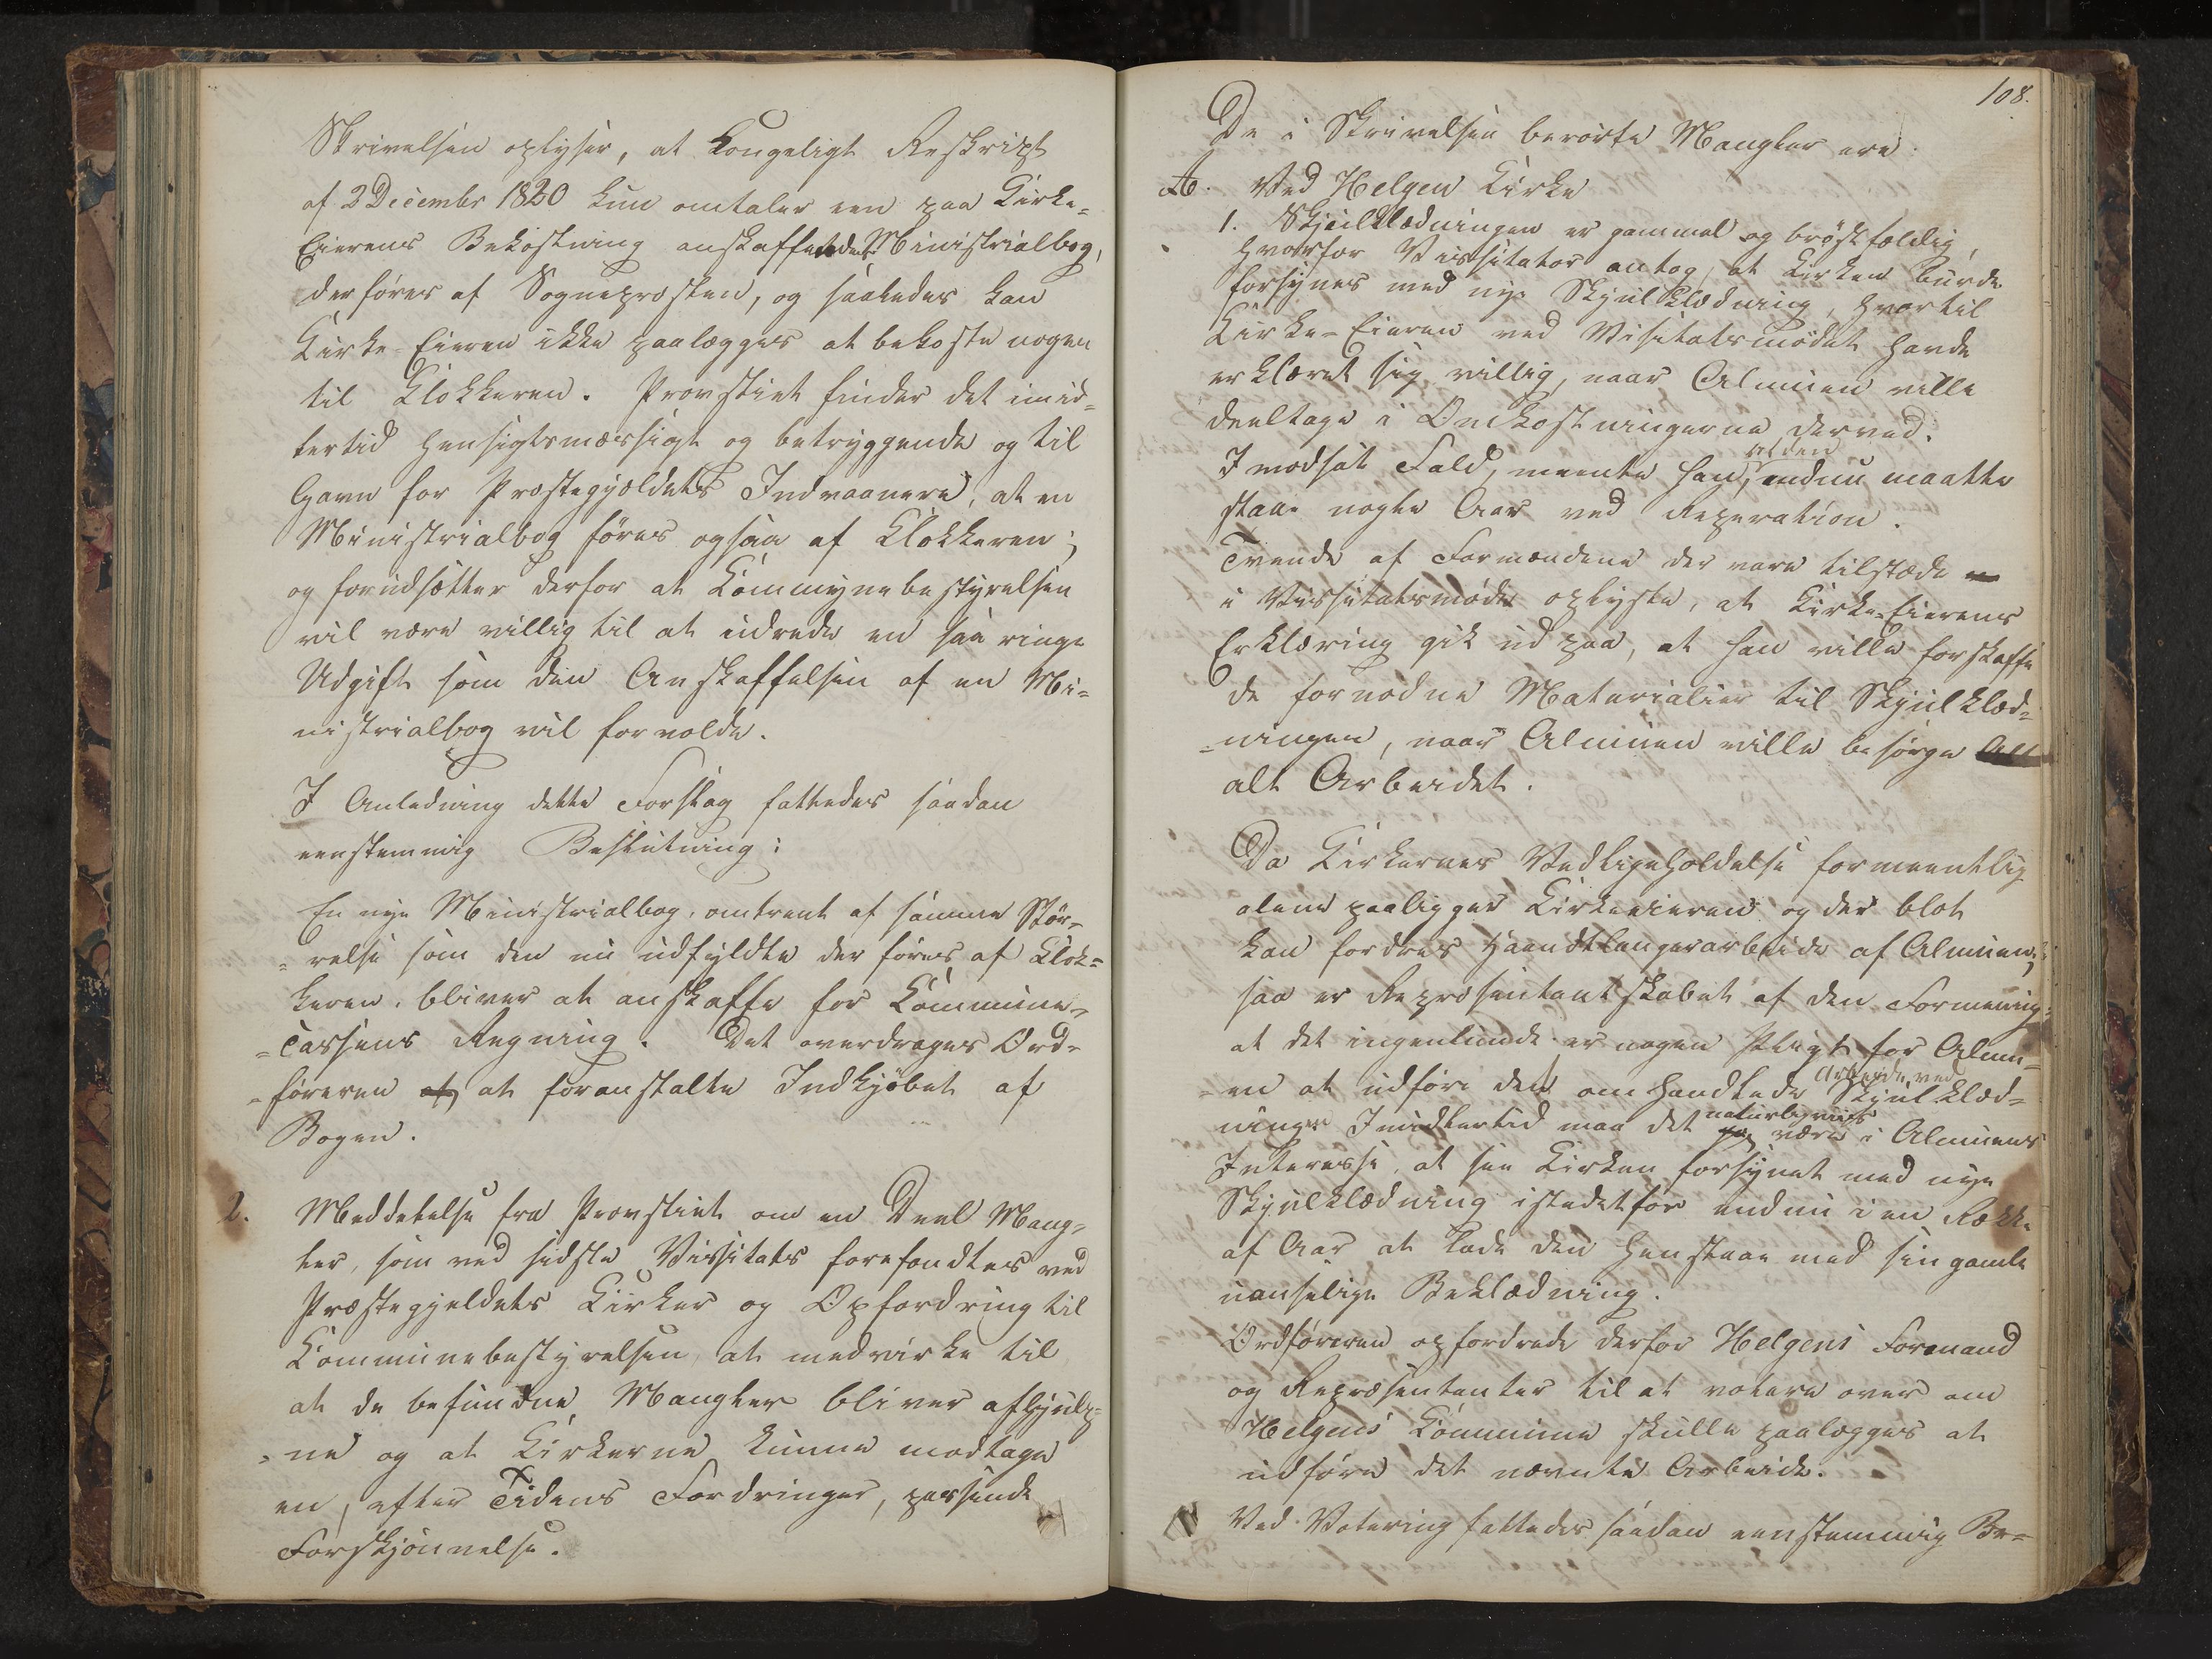 Skrivelsen oplyser, at Kongeligt Reskript
af 2 Decembr 1820 kun omtaler een paa Kirke-
Eierens Bekostning anskaffendes Ministrialbog,
der føres af Sogneprosten, og saaledes kan
Kirke-Eieren ikke paalægges at bekoste nogen
til Klokkeren. Provstiet finder det imid-
lertid hensigtsmæssigt og betryggende og til
Gavn for Præstegjeldets Indvaanere, at en
Ministrialbog føres ogsaa af Klokkeren;
og forudsætter derfor at Kommunebestyrelsen
vil være villig til at udrede en saa ringe
Udgift som den Anskaffelsen af en Mi-
nistrialbog vil forvolde.
I Anledning dette Forslag fattedes saadan
eenstemmig Beslutning:
En nye Ministrialbog, omtrent af samme Stør-
=relse som den nu udfyldte der føres af Klok=
keren, bliver at anskaffe for Kommune-
=Cassens Regning. Det overdrages Ord-
=føreren at foranstalte Indkjøbet af
Bogen.
2. Meddelelse fra Provstiet om en Deel Mang-
ler, som ved sidste Vissitats forefandtes ved
Præstegjeldets Kirker og Opfordring til
Kommunebestyrelsen at medvirke til
at de befundne Mangler bliver afhjulp=
=ne og at Kirkerne kunne modtage
en, efter Tidens Fordringer, passende
Forskjønnelse.
108.
De i Skrivelsen berørte Mangler ere.
A. Ved Helgen Kirke
1. Skjulklædningen er gammel og brøstfældig,
hvorfor Vissitator antog, at Kirken burde
forsynes med nye Skjulklædning, hvortil
Kirke-Eieren ved Visitatsmødet havde
erklæret sig villig, naar Almuen ville
deeltage i Omkostningerne derved.
I modsat Fald, meente han, at den endnu maatte
staae nogle Aar ved Reperation.
Tvende af Formændene der vare tilstæde
i Vissitatsmøde oplyste, at Kirke-Eierens
Erklæring gik ud paa, at han ville forskaffe
de fornødne Materialier til Skjulklæd=
=ningen, naar Almuen ville besørge All
alt Arbeidet.
Da Kirkernes Vedligeholdelse formeentlig
alene paaligger Kirkeeieren og der blot
kan fordres Haandtlangerarbeide af Almuen,
saa er Repræsentantskabet af den Formening
at det ingenlunde er nogen Pligt for Almu-
=en at udføre det omhandlede Arbeide ved Skjulklæd=
ningen Imidlertid maa det naturligviis være i Almuens
Interesse, at see Kirken forsynet med nye
Skjulklædning istedetfor endnu i en Række
af Aar at lade den henstaae med sin gamle
uanselige Beklædning.
Ordføreren opfordrede derfor Helgens Formænd
og Repræsentanter til at votere over om
Helgens Kommune skulle paalægges at
udføre det nævnte Arbeide.
Ved Votering fattedes saadan eenstemmig Be=